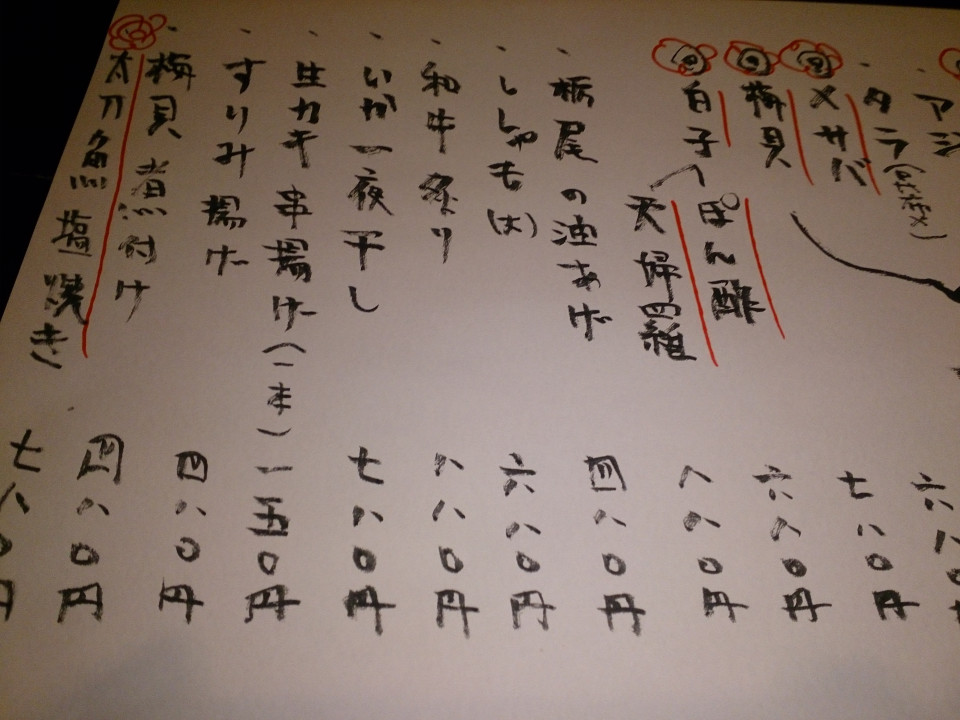 アジ
タラ(昆布〆) 六八〇円
〆サバ 七八〇円
梅貝 六八〇円
白子 ぽん酢 八八〇円
天婦羅
栃尾の油あげ 四八〇円
ししゃも(大) 六八〇円
和牛炙り 八八〇円
いか一夜干し 七八〇円
生カキ串揚げ(一本) 一五〇円
すりみ揚げ 四八〇円
梅貝煮付け 四八〇円
太刀魚塩焼き 七八〇円